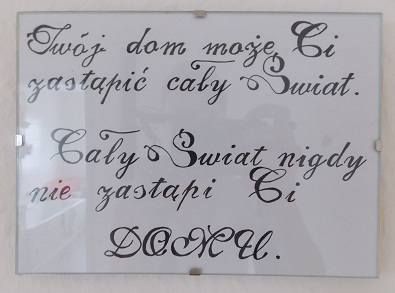 Twój dom może Ci
zastąpić cały Świat.
Cały Świat nigdy
nie zastąpi Ci
DOMU.